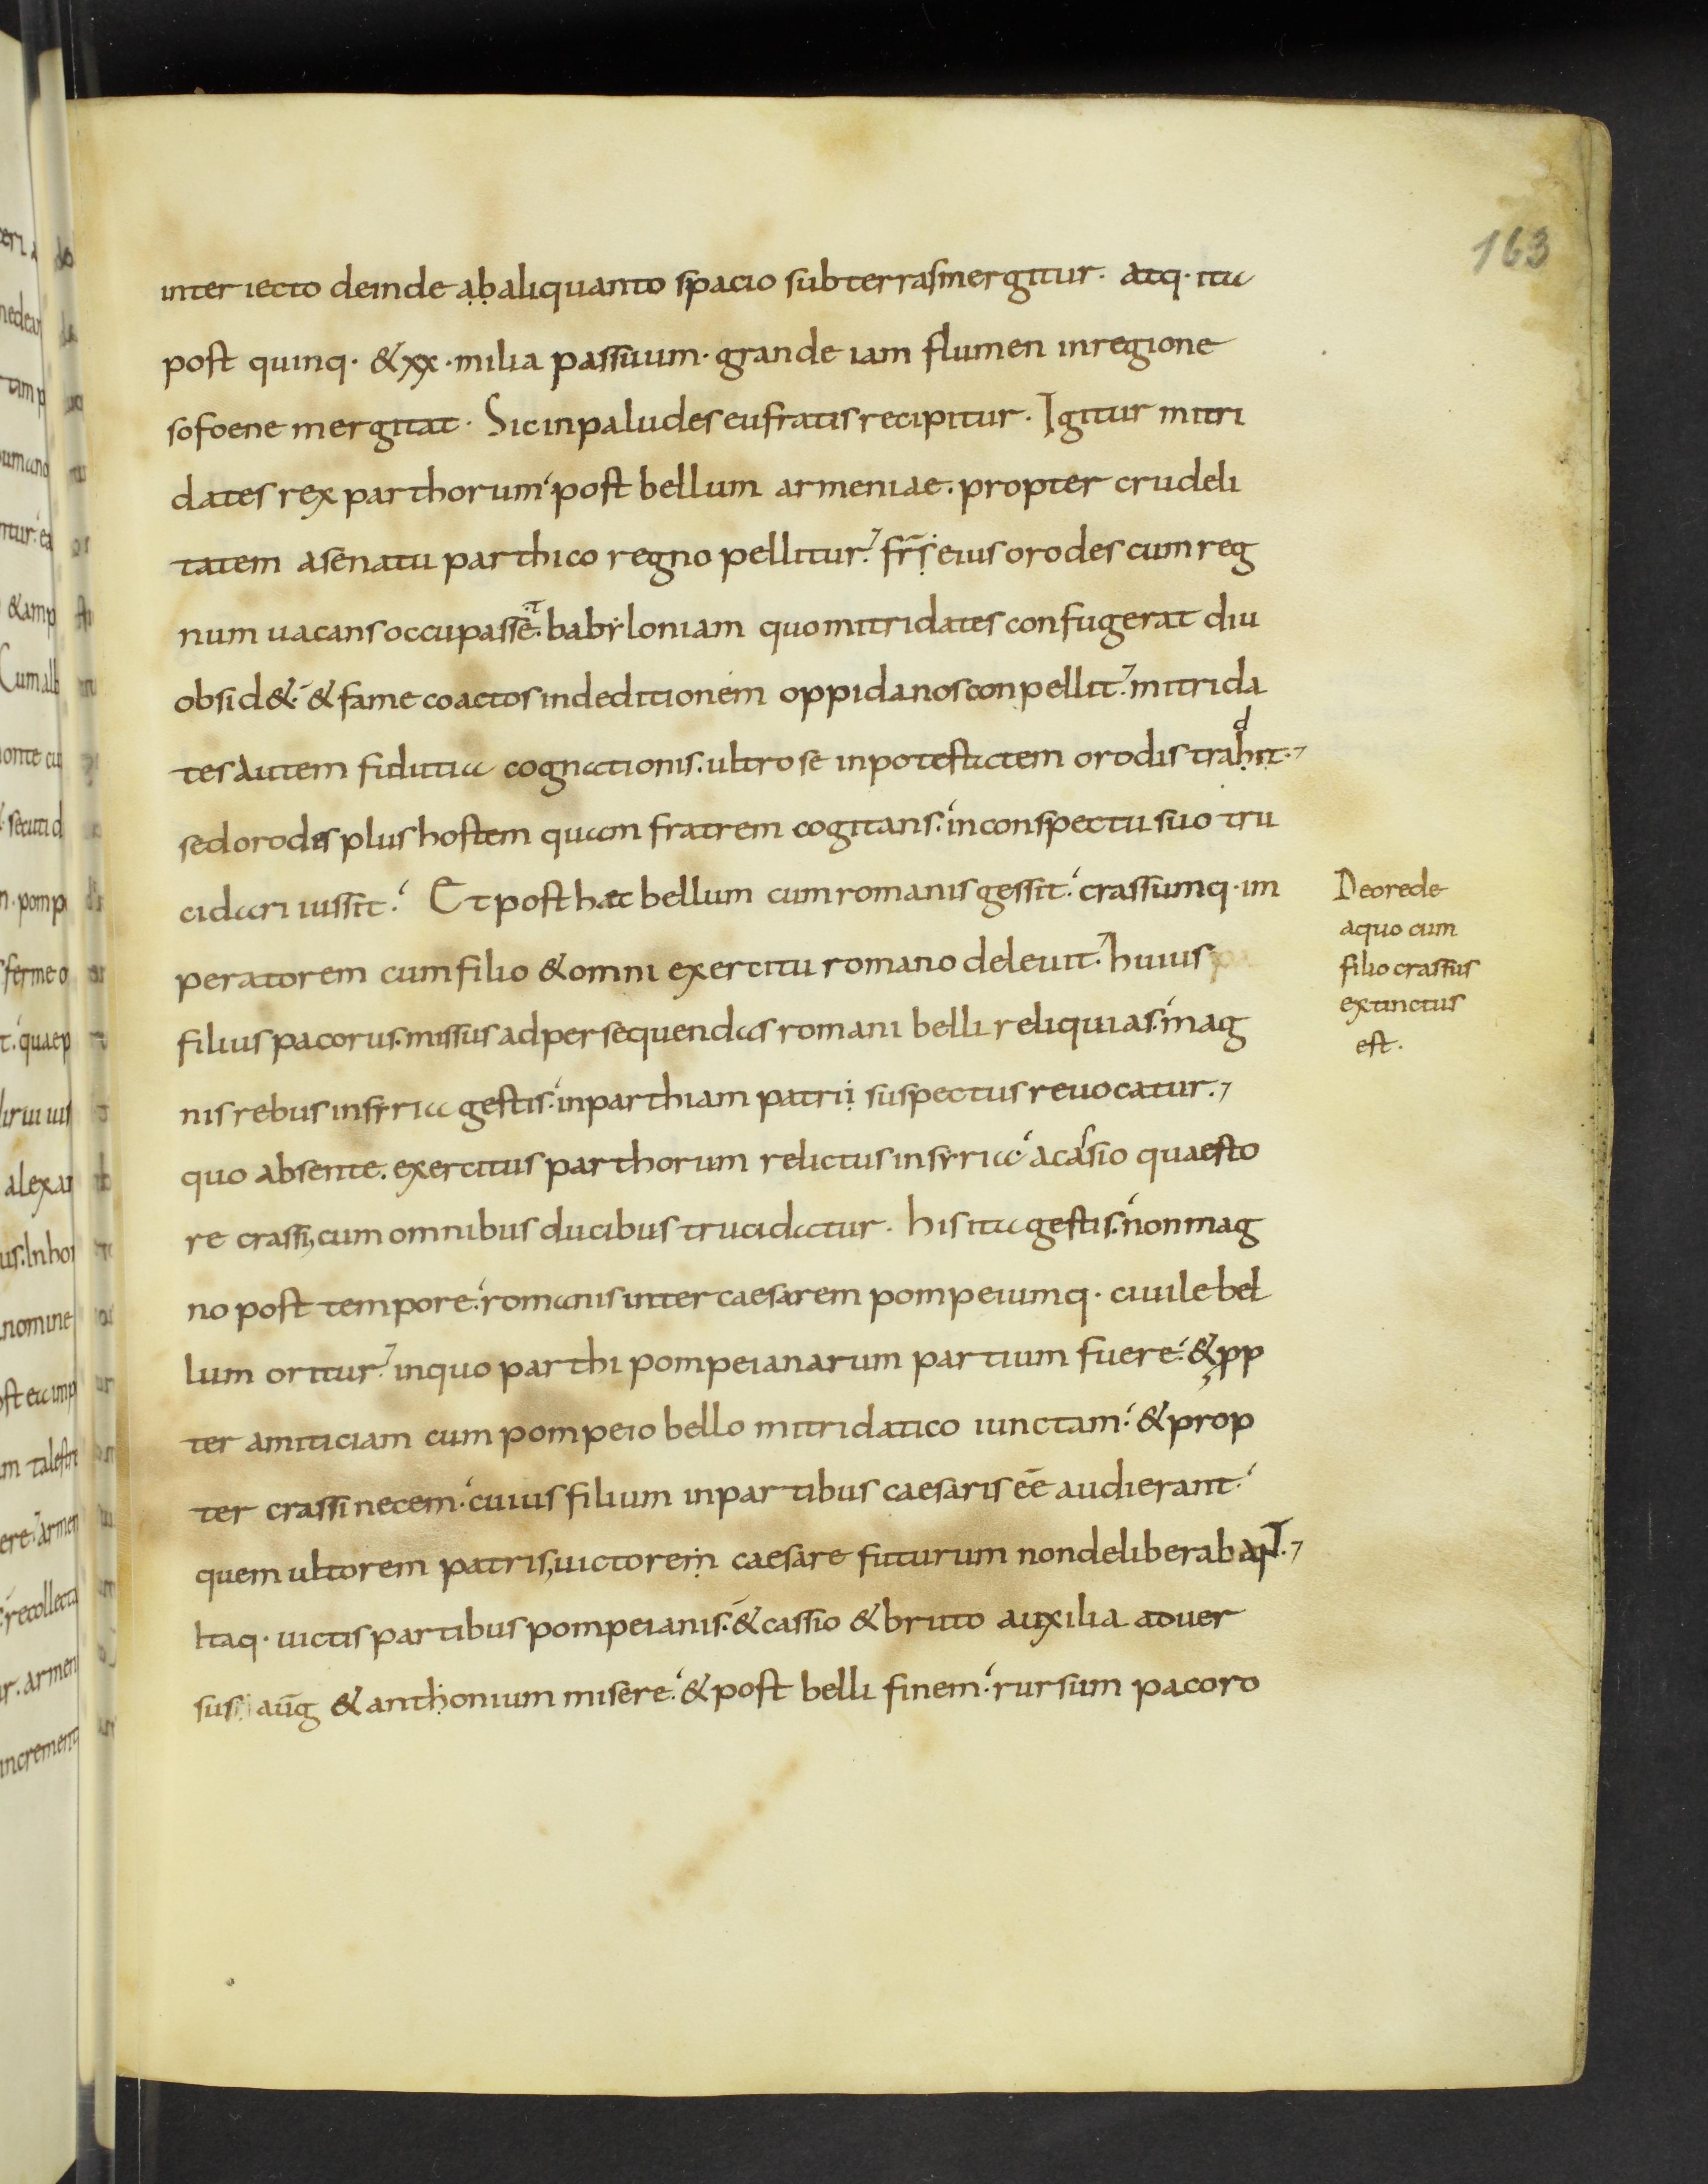 163
inter iecto deinde ab aliquanto spacio sub terras mergitur. atq· ita
post quinq· & xx · milia passuum · grande iam flumen in regione
sofoene mergitat · Sic in paludes eufratis recipitur. Igitur mitri
dates rex parthorum post bellum armeniae. propter crudeli
tatem a senatu parthico regno pellitur. frs̄ eius orodes cum reg
num uacans occupasset. babyloniam quo mitridates confugerat diu
obsid&. & fame coactos in deditionem oppidanos conpellit. mitrida
tes autem fidutia cognationis. ultro se in potestatem orodis tradit.
sed orodes plus hostem quam fratrem cogitans. in conspectu suo tru
cidari iussit. Et post haec bellum cum romanis gessit. crassumq· im
peratorem cum filio & omni exercitu romano deleuit. huius
filius pacorus. missus ad persequendas romani belli reliquias. mag
nis rebus in syria gestis. in parthiam patrii suspectus reuocatur.
quo absente. exercitus parthorum relictus in syria a cassio quaesto
re crassi, cum omnibus ducibus trucidatur. his ita gestis. non mag
no post tempore. romanis inter caesarem pompeiumq· ciuile bel
lum oritur. in quo parthi pompeianarum partium fuere. & pp
ter amiticiam cum pompeio bello mitridatico iunctam. & prop
ter crassi necem. cuius filium in partibus caesaris ēē audierant.
quem ultorem patris, uictorem caesare futurum non deliberabaNT.
Itaq· uictis partibus pompeianis. & cassio & bruto auxilia aduer
sus aūg & anthonium misere. & post belli finem. rursum pacoro
De orede
a quo cum
filio crassus
extinctus
est.